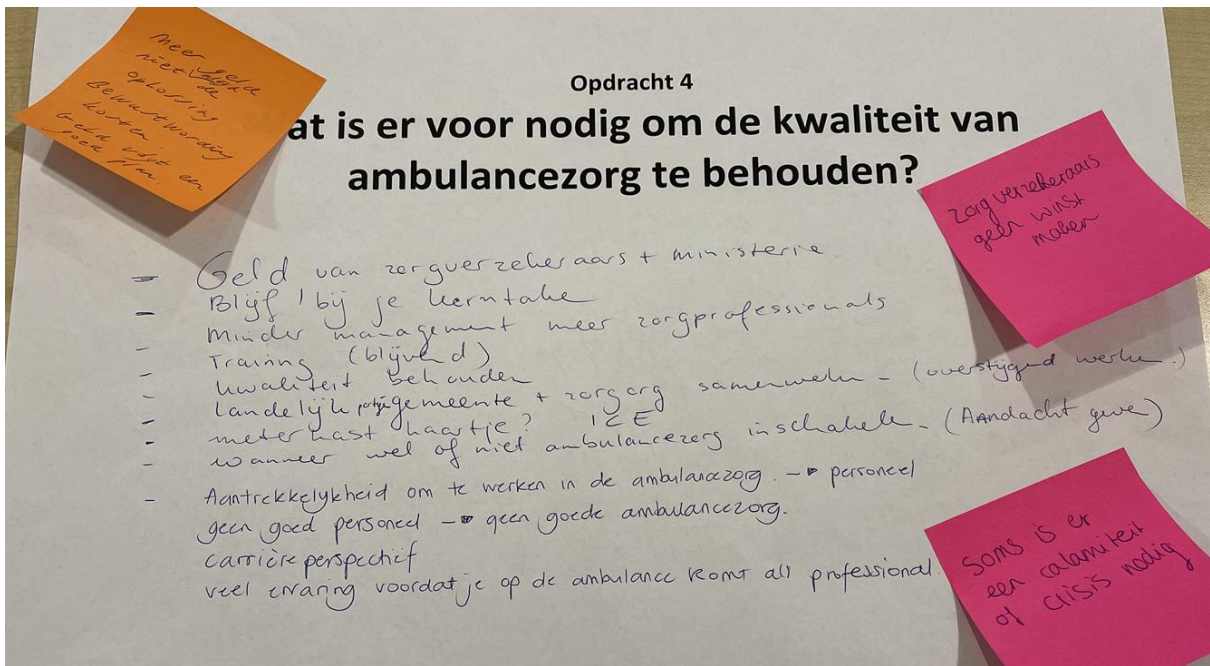 Opdracht 4
at is er voor nodig om de kwaliteit van
ambulancezorg te behouden?
meer geld
niet de
oplossing
Bewustwording
kosten
Geld
goed
zorgverzekeraars
geen winst
maken
- Geld van zorgverzekeraars + ministerie
- Blijf bij je kerntake
- Minder management meer zorgprofessionals
- Training (blijvend)
- kwaliteit behouden
- Landelijk gemeente + zorgorg samenwerken - (overstijgend werken.)
- meterkast kaartje? ICE
- wanneer wel of niet ambulancezorg inschakelen - (AAndacht geve)
- Aantrekkelijkheid om te werken in de ambulancezorg. → personeel
geen goed personeel → geen goede ambulancezorg.
carrière perspectief
veel ervaring voordat je op de ambulance komt als professional.
soms is er
een calamiteit
of crisis nodig